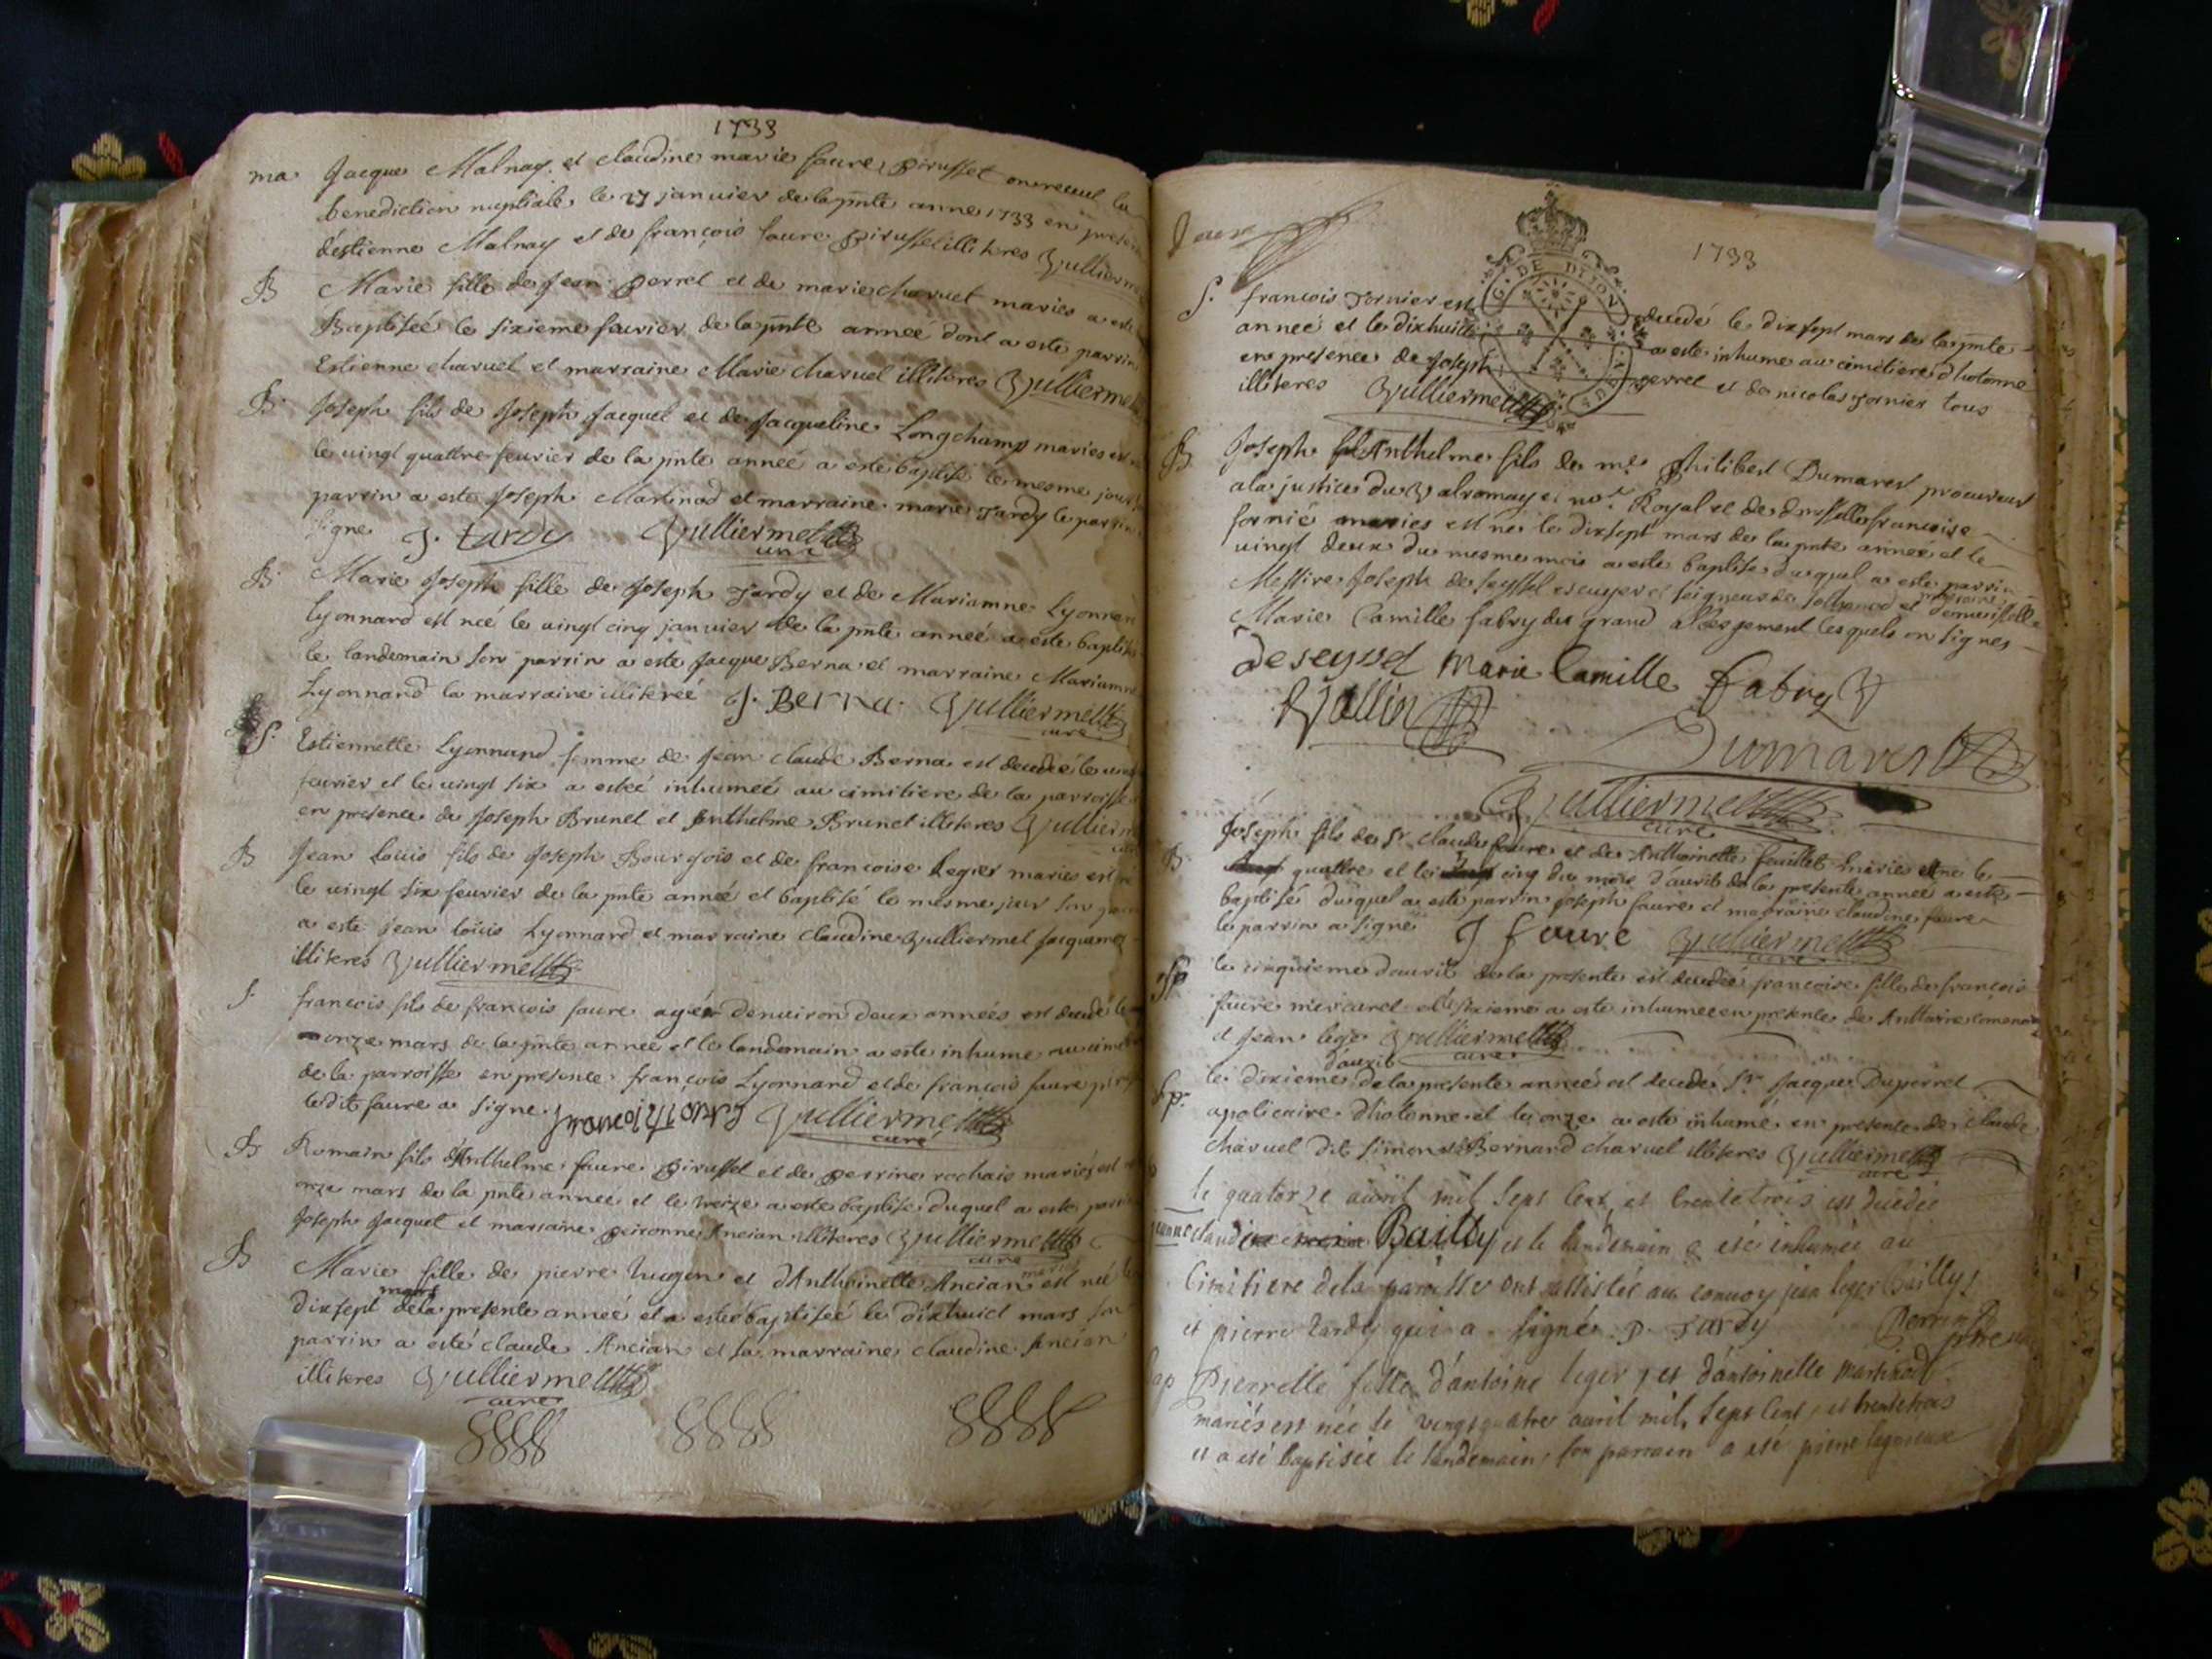 1733
ma Jacque Malnay et claudine marie faure Pirusset on receul la
benediction nuptiale le 27 janvier de la pnte anne 1733 en presen
destienne Malnay et de françois faure Pirusset illiteres Vullierm
B Marie fille de Jean perret et de marie charuet maries a este
Baptiseé le sixieme feurier de la pnte anneé dont a este parrin
Estienne charuel et marraine Marie charuel illiteres Vulliermet
B Joseph fils de Joseph Jacquet et de Jacqueline Longchamp maries est
le uingt quattre feurier de la pnte anneé a este baptisé le mesme jour
parrin a este Joseph Martinod et marraine marie Tardy le parrin
signe J. tardy Vulliermet
curé
B Marie Joseph fille de Joseph Tardy et de Mariamne Lyonnard
Lyonnard est neé le uingt cinq januier de la pnte anneé a este baptisé
le landemain son parrin a este Jacque Berna et marraine Mariamne
Lyonnard la marraine illitereé J. Berna Vulliermet
curé
S. Estiennette Lyonnard femme de Jean claude Berna est decedeé le
feurier et le uingt six a esteé inhumeé au cimitiere de la parroisse
en presence de Joseph Brunet et Anthelme Brunet illiteres Vullierm
B Jean Louis fils de Joseph Bourgois et de francoise Leger maries est né
le uingt six feurier de la pnte anneé et baptisé le mesme jour son
a este jean loüis Lyonnard et marraine claudine Vulliermet Jacquemet
illiteres Vulliermet
S. francois fils de francois faure agé denuiron deux anneés est decedé le
onze mars de la pnte anneé et le landemain a este inhume au cime
de la parroisse en presence françois Lyonnard et de francois faure
ledit faure a signe Vulliermet
curé
B Romain fils d'Anthelme faure Pirusset et de perrine rochaix mariés est
onze mars de la pnte anneé et le treize a este baptise duquel a este
Joseph Jacquet et marraine peironne Ancian illiteres Vulliermet
curé
B Marie fille de pierre hugon et d'Anthoinette Ancian maries est neé le
dixsept mars de la presente anneé et a esteé baptiseé le dixhuict mars son
parrin a esté claude Ancian et sa marraine claudine Ancian
illiteres Vulliermet
curé
1733
G. DE DIJON
S. francois Fornier est decedé le dixsept mars de la pnte
anneé et le dixhuict a este inhume au cimetiere d'hotonne
en presence de Joseph perret et de nicolas Fornier tous
illiteres Vulliermet
B Joseph Anthelme fils de me. Philibert Dumarest procureur
a la justice du Valromay et nore. Royal et de dmselle francoise
fornié maries est né le dixsept mars de la pnte anneé et le
uingt deux du mesme mois a este baptise duquel a este parrin
Messire Joseph de seyssel escuyer et seigneur de et marraine demoiselle
Marie Camille fabry du grand Abergement lesquels on signes
Deseyssel marie Camille fabry
Vallin
Dumarest
Vulliermet
curé
B Joseph fils de Sr. claude faure et de Anthoinette feuillet maries est né le
quattre et le cinq du mois d'auril de la presente anneé a este
baptisé duquel a este parrin joseph faure et marraine claudine faure
le parrin a signé J faure Vulliermet
curé
Sp. le cinquieme d'auril de la presente est decedeé francoise fille de françois
faure mercuret et le sixieme a este inhumee en presence de Anttoine
et Jean leger Vulliermet
curé
Sp. le dixieme d'auril de la presente anneé est decedé Sr. Jacque Duperret
apoticaire d'hotonne et le onze a este inhumé en presence de claude
charuel dit simon et Bernard charuel illiteres Vulliermet
curé
le quatorze auril mil sept cent et trente trois est decedée
jeanne claudine Bailly et le landemain a eté inhumée au
Cimitiere de la paroisse ont assisteé au convoy jean leger Bailly
et pierre tardy qui a signé P. Tardy Perrin
ptre
bap Pierrette fille d'antoine leger et d'antoinette martinod
mariés est née le vingtquatre auril mil sept cent et trente trois
et a eté baptisée le landemain, son parrain a eté pierre